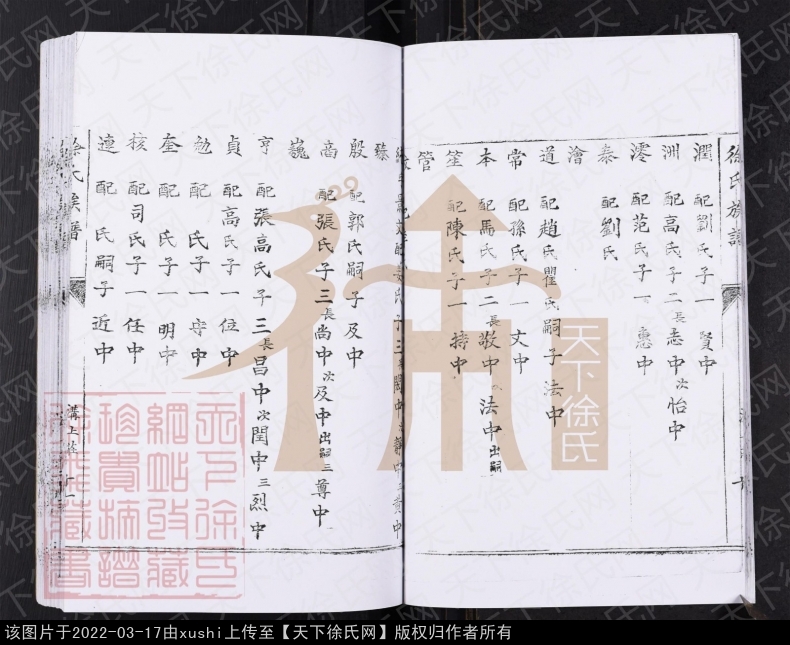 徐氏族譜
潤 配劉氏子一賢中
洲 配高氏子二長志中次怡中
澪 配范氏子一惠中
泰 配劉氏
澮
道 配趙氏瞿氏嗣子法中
常 配孫氏子一文中
本 配馬氏子二長敬中次法中出嗣
笙 配陳氏子一
管
殷 配郭氏嗣子及中
高 配張氏子三長尚中次及中出嗣三尊中
巍
亨 配張高氏子三長昌中次閏中三烈中
貞 配高氏子一位中
勉 配 氏子一守中
奎 配 氏子一明中
核 配司氏子一任中
連 配 氏嗣子近中
徐氏族譜
溝上 十一
天下徐氏
天下徐氏
網站收藏
珍貴族譜
徐氏藏書
该图片于2022-03-17由xushi上传至【天下徐氏网】版权归作者所有